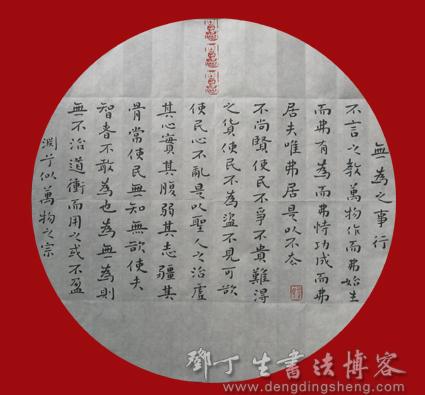 無為之事行
不言之教萬物作而弗始生
而弗有為而弗恃功成而弗
居夫唯弗居是以不去
不尚賢使民不爭不貴難得
之貨使民不為盜不見可欲
使民心不亂是以聖人之治虛
其心實其腹弱其志疆其
骨常使民無知無欲使夫
智者不敢為也為無為則
無不治道衝而用之或不盈
淵乎似萬物之宗
鄧丁生書法博客
www.dengdingsheng.com